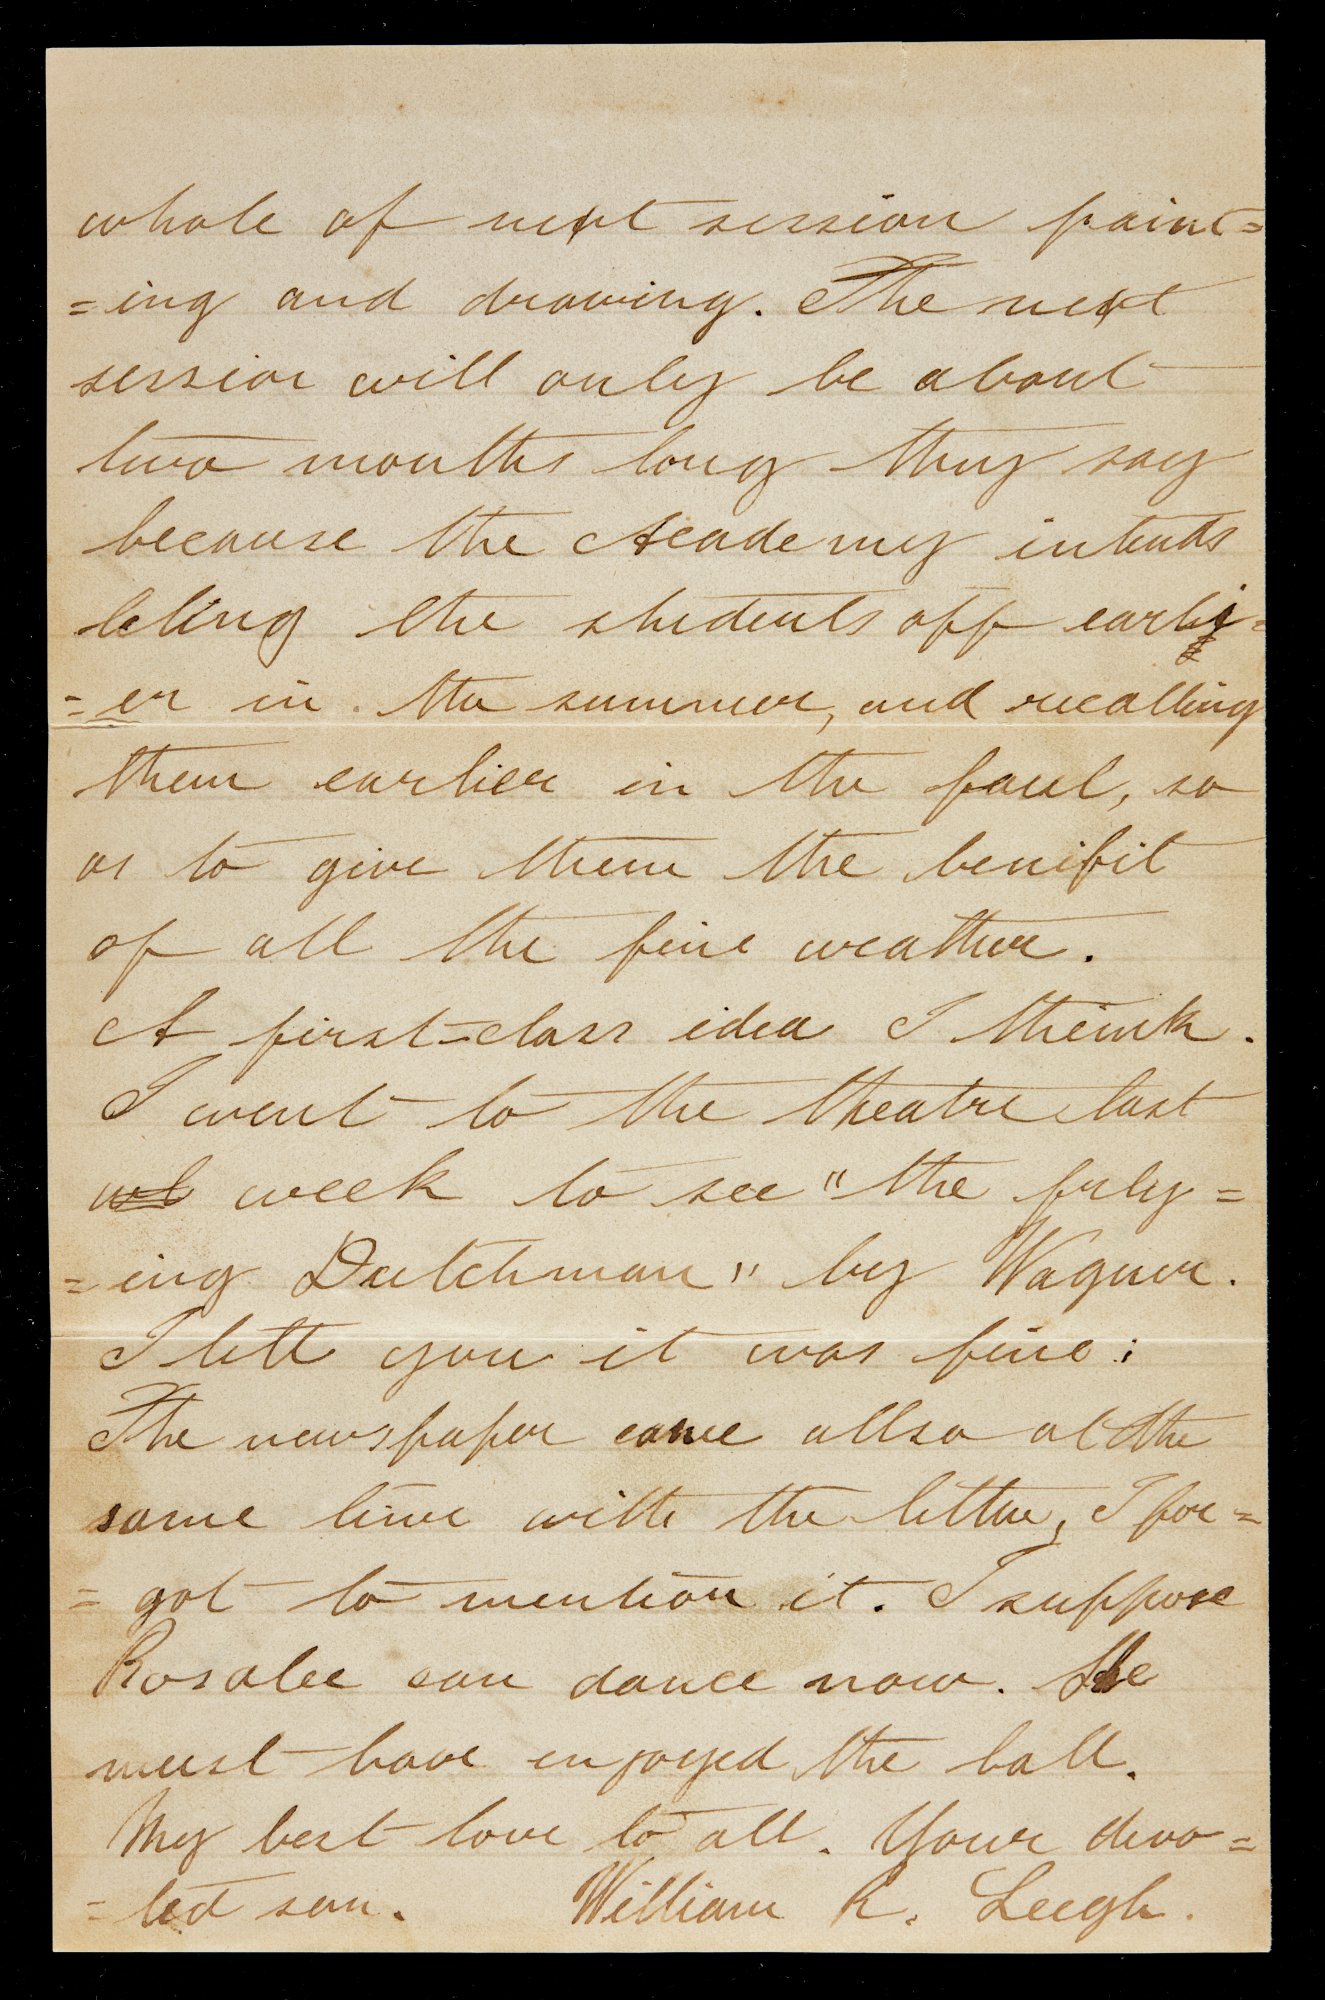 whole of next session paint=
=ing and drawing. The next
session will only be about
two months long they say
because the Academy intends
leting the students off earli=
=er in the summer, and recalling
them earlier in the faul, so
as to give them the benifit
of all the fine weather.
A first=class idea I theink.
I went to the theatre last
week to see "the frly=
=ing Dutchman" by Wagner.
I tell you it was fine:
The newspaper came allso at the
same time with the letter, I for=
=got to mention it. I suppose
Rosalee can dance now. She
must have enjoyed the ball.
My best love to all. Your devo=
=ted son. William R. Leigh.